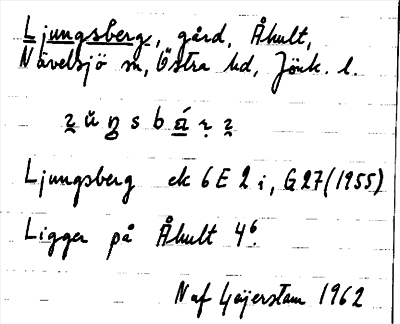 Ljungsberg, gård, Åhult,
Nävelsjö sn, Östra hd, Jönk. l.
Ljungsberg ek 6 E 2 i, G 27 (1955)
Ligger på Åhult 4⁶.
N af Geijerstam 1962